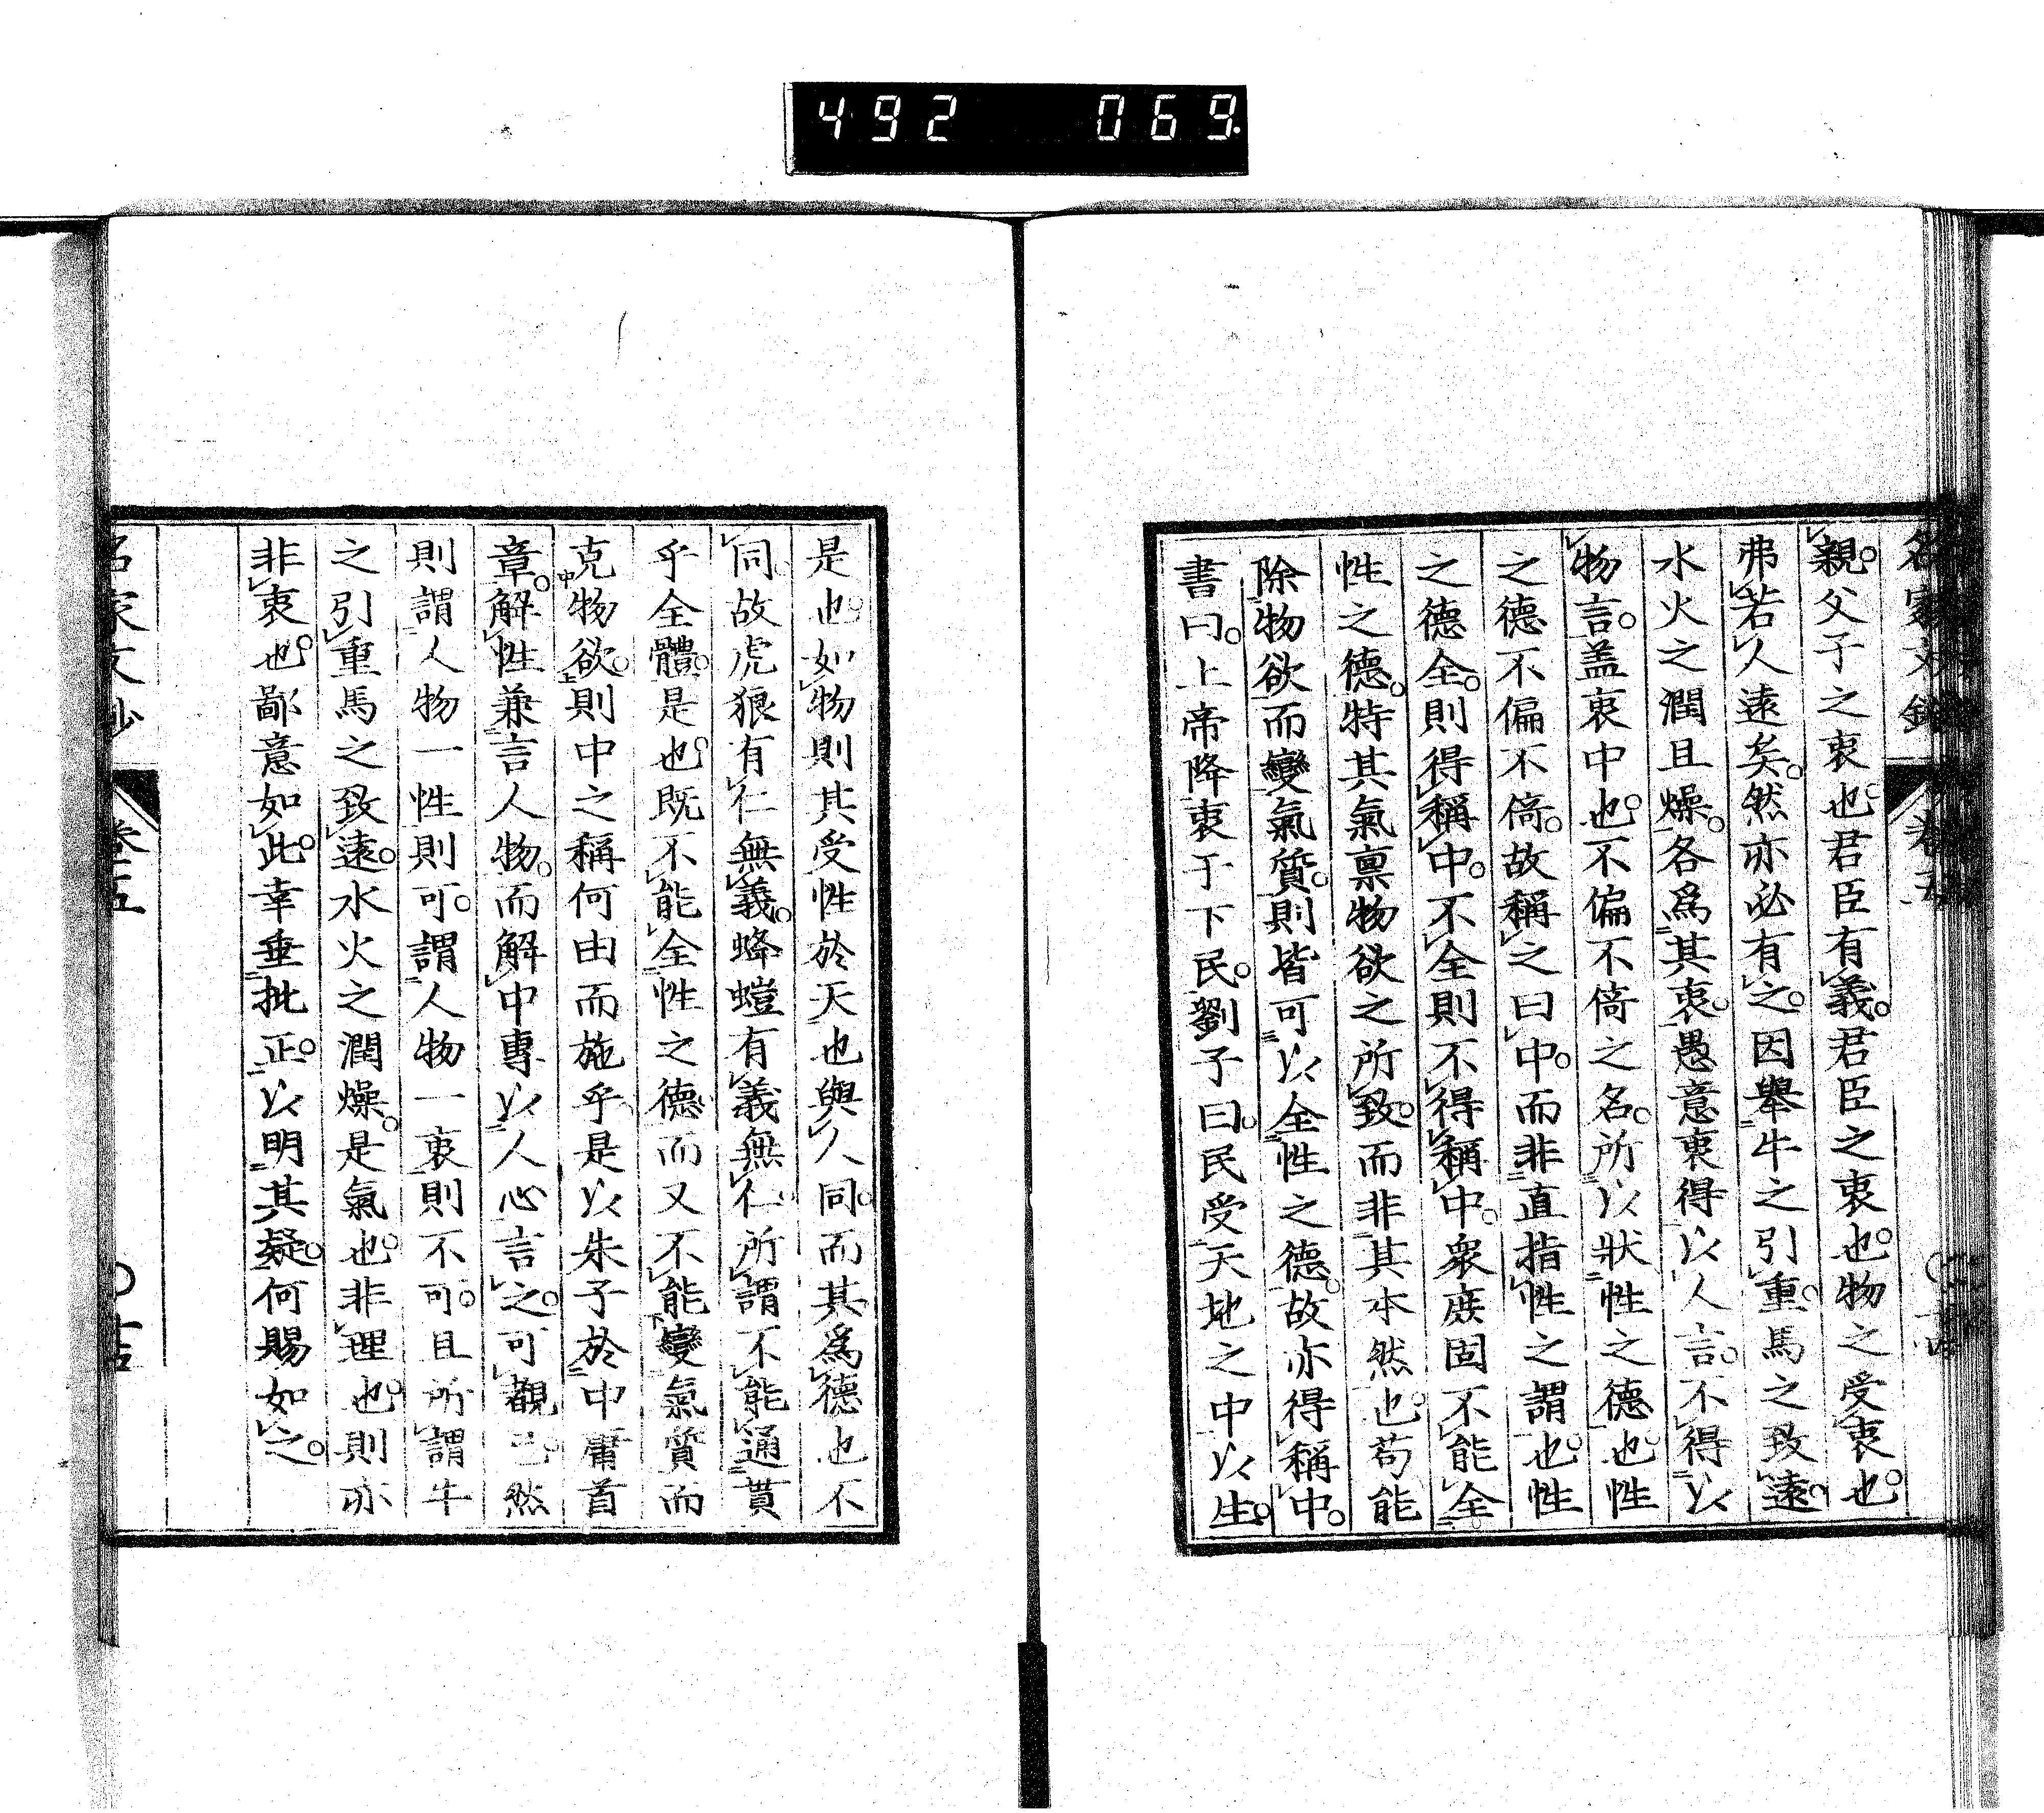 492 069
親。父子之衷也。君臣有義。君臣之衷也。物之受衷也。
弗若人遠矣。然亦必有之。因擧牛之引重。馬之致遠。
水火之潤且燥。各爲其衷。愚意衷得以人言。不得以
物言。盖衷中也。不偏不倚之名。所以狀性之德也。性
之德不偏不倚。故稱之曰中。而非直指性之謂也。性
之德全。則得稱中。不全則不得稱中。衆庶固不能全
性之德。特其氣禀物欲之所致。而非其本然也。苟能
除物欲而變氣質。則皆可以全性之德。故亦得稱中。
書曰。上帝降衷于下民。劉子曰。民受天地之中以生。
是也。如物則其受性於天也與人同。而其爲德也不
同。故虎狼有仁無義。蜂螘有義無仁。所謂不能通貫
乎全體。是也。既不能全性之德。而又不能變氣質而
克物欲。則中之稱何由而施乎。是以朱子於中庸首
章。解性兼言人物。而解中專以人心言之。可觀已。然
則謂人物一性則可。謂人物一衷則不可。且所謂牛
之引重馬之致遠。水火之潤燥。是氣也。非理也。則亦
非衷也。鄙意如此。幸垂批正。以明其疑。何賜如之。
名家文鈔 卷五